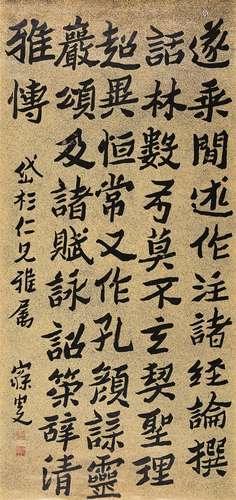 遂乘閒述作注諸經論撰
話林數弓莫不玄契聖理
超異恒常又作孔顏誄靈
嚴頌及諸賦詠詔策辭清
雅愽
岱杉仁兄雅屬
寐叟